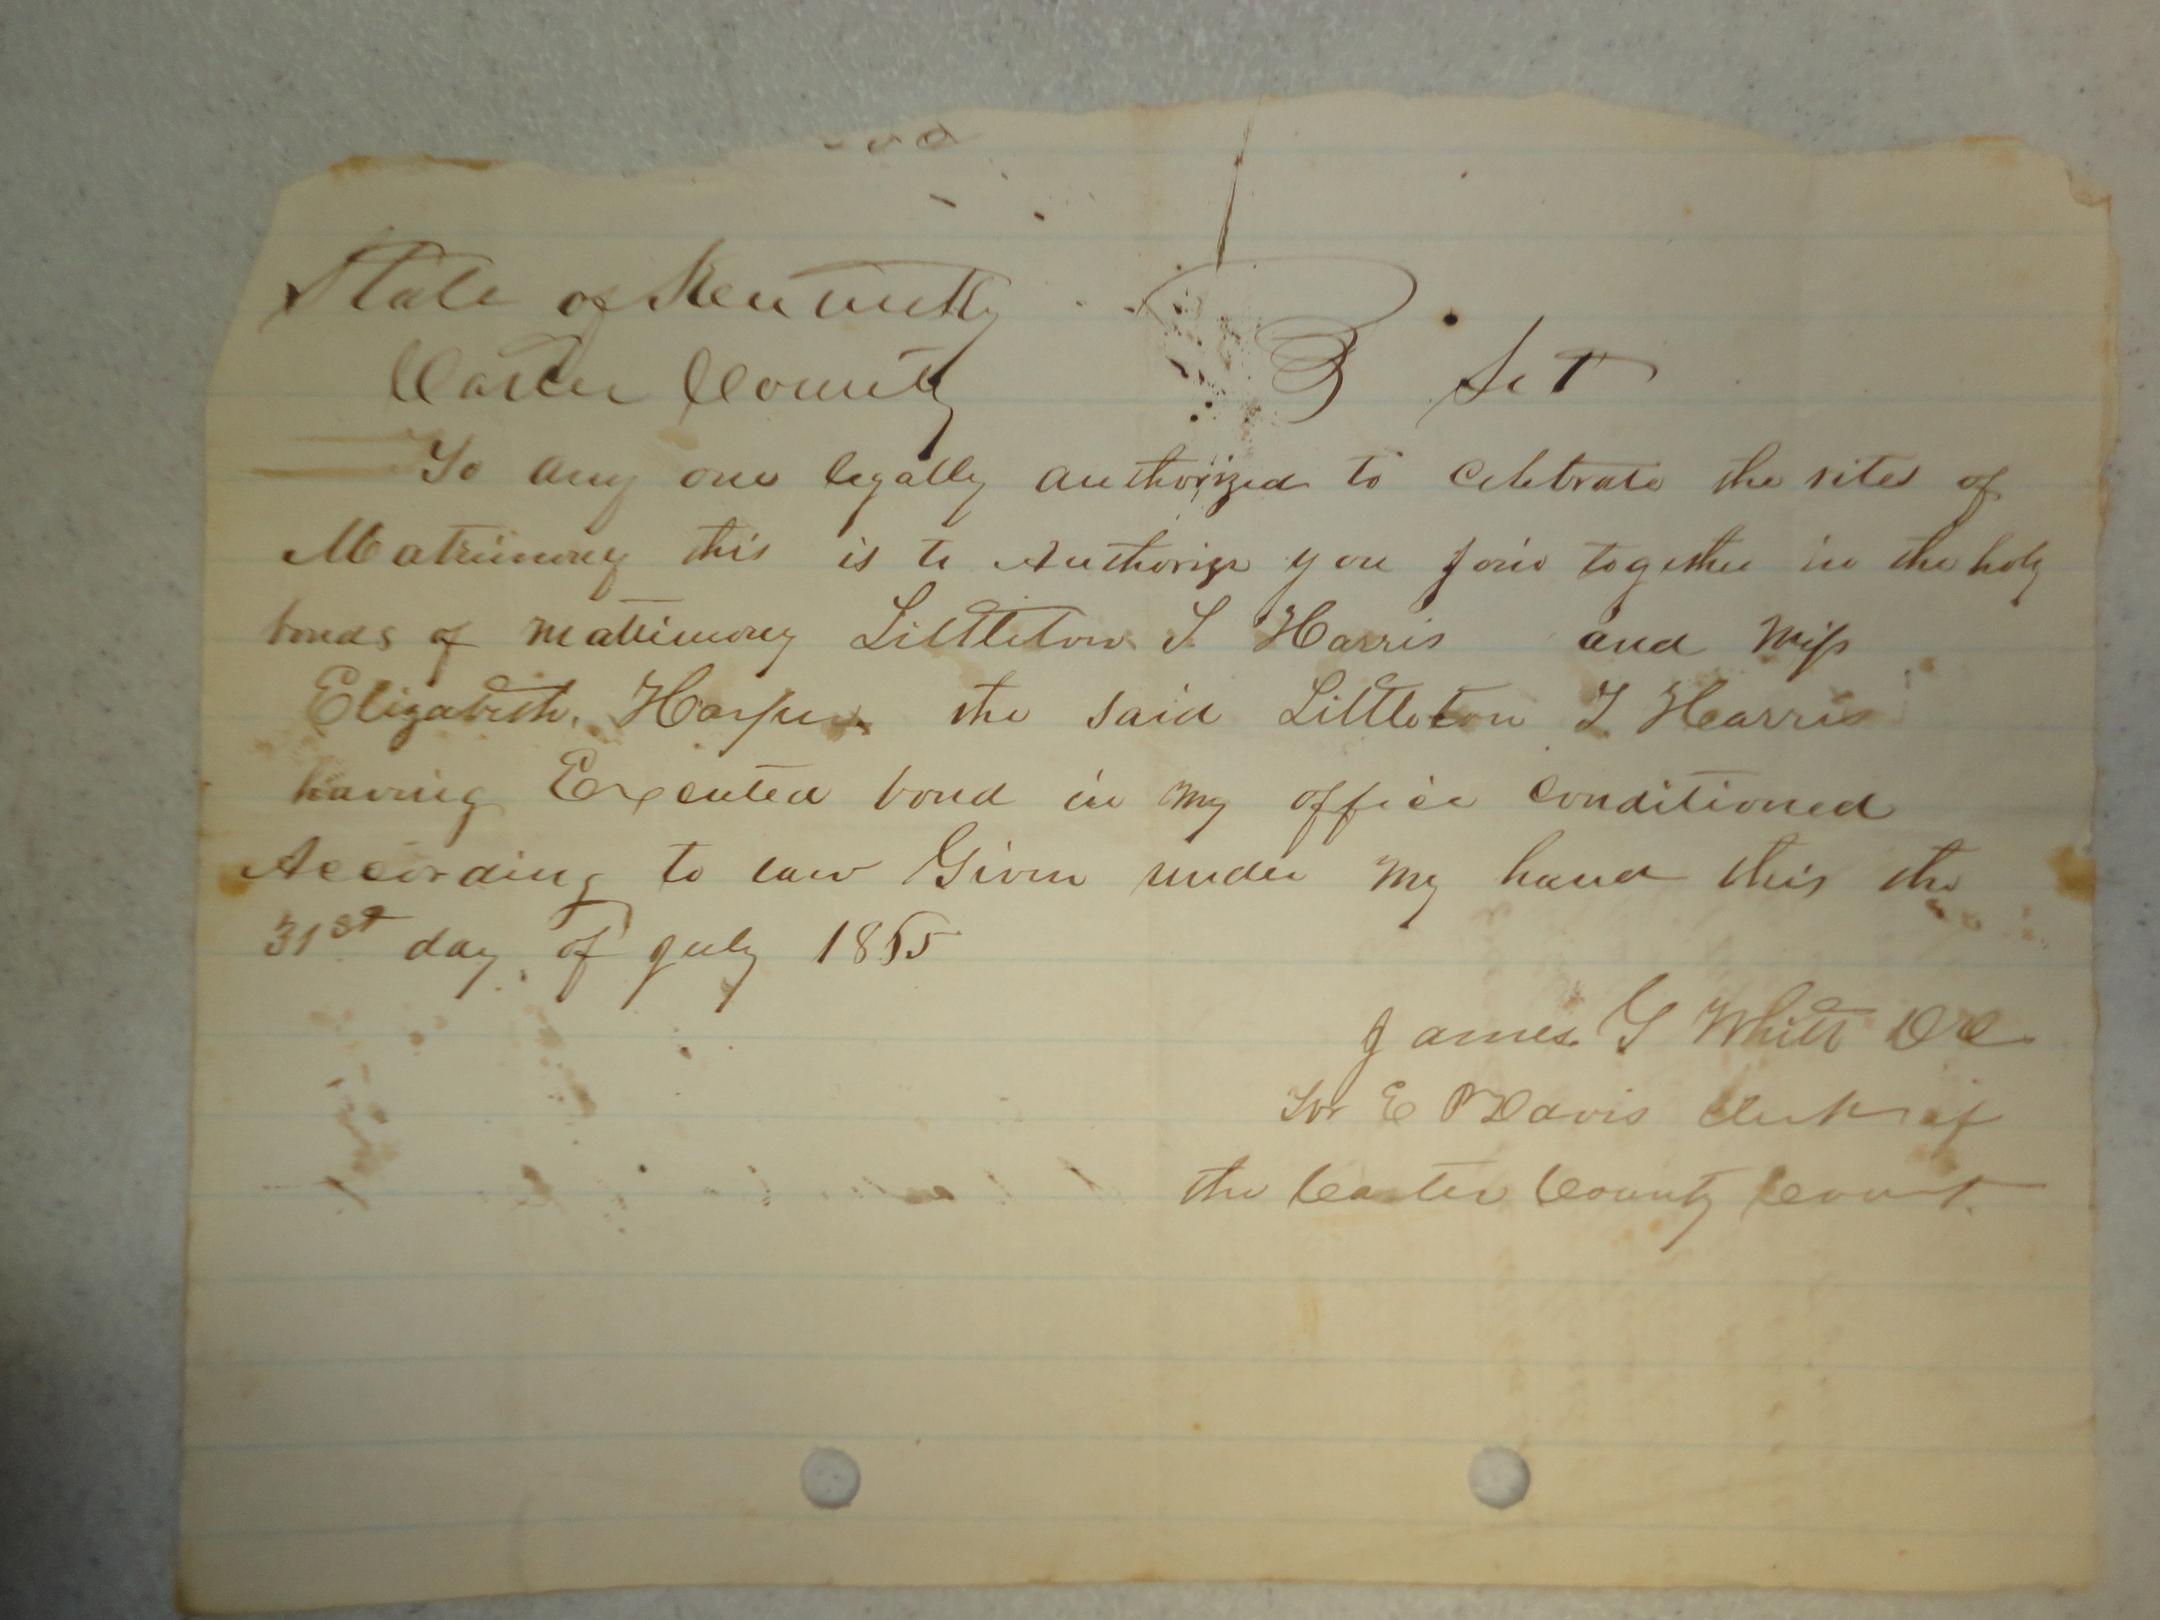 State of Kentucky
Carter County } Sct
To any one legally authorized to celebrate the rites of
Matrimony this is to Authorize you join together in the holy
bonds of matrimony Littleton T Harris and Miss
Elizabeth Harper the said Littleton T Harris
having Executed bond in my office conditioned
According to law Given under my hand this the
31st day of July 1865
James G Whitt DC
for E P Davis Clerk of
the Carter County Court